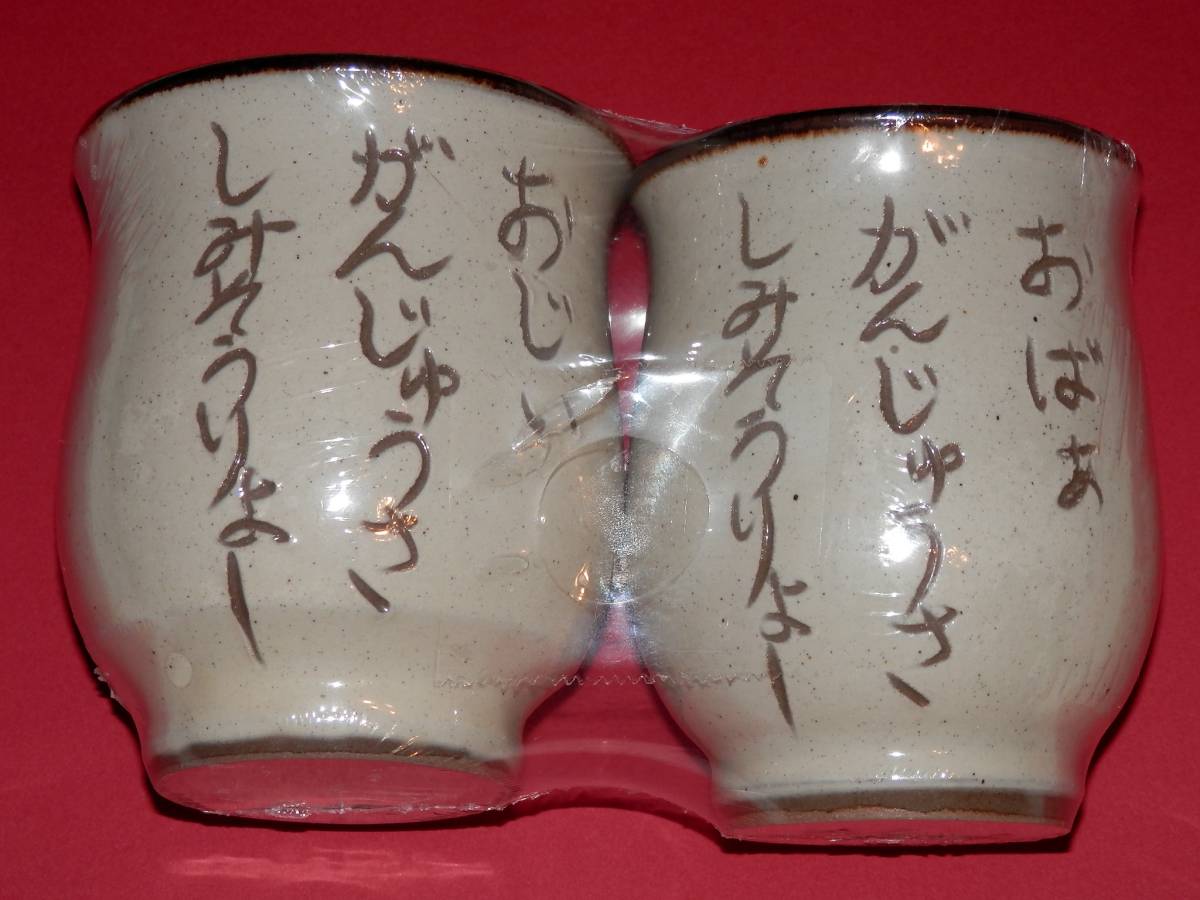 おじぃ
がんじゅうさ、
しみそうりよー
おばぁ
がんじゅうさ、
しみそうりよー